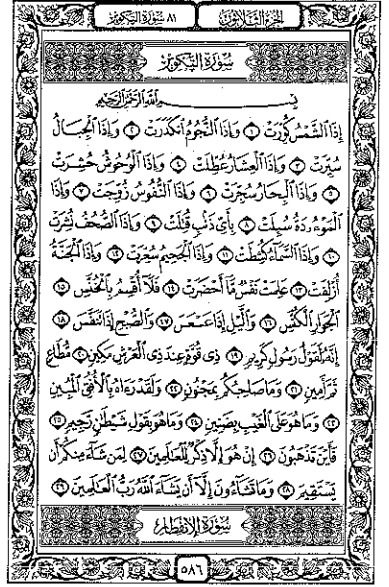 الجزء الثلاثون
٨١ سورة التكوير
سورة التكوير
بسم الله الرحمن الرحيم
إِذَا الشَّمْسُ كُوِّرَتْ ١ وَإِذَا النُّجُومُ انكَدَرَتْ ٢ وَإِذَا الْجِبَالُ
سُيِّرَتْ ٣ وَإِذَا الْعِشَارُ عُطِّلَتْ ٤ وَإِذَا الْوُحُوشُ حُشِرَتْ
٥ وَإِذَا الْبِحَارُ سُجِّرَتْ ٦ وَإِذَا النُّفُوسُ زُوِّجَتْ ٧ وَإِذَا
الْمَوْءُودَةُ سُئِلَتْ ٨ بِأَيِّ ذَنبٍ قُتِلَتْ ٩ وَإِذَا الصُّحُفُ نُشِرَتْ
١٠ وَإِذَا السَّمَاءُ كُشِطَتْ ١١ وَإِذَا الْجَحِيمُ سُعِّرَتْ ١٢ وَإِذَا الْجَنَّةُ
أُزْلِفَتْ ١٣ عَلِمَتْ نَفْسٌ مَّا أَحْضَرَتْ ١٤ فَلَا أُقْسِمُ بِالْخُنَّسِ ١٥
الْجَوَارِ الْكُنَّسِ ١٦ وَاللَّيْلِ إِذَا عَسْعَسَ ١٧ وَالصُّبْحِ إِذَا تَنَفَّسَ ١٨
إِنَّهُ لَقَوْلُ رَسُولٍ كَرِيمٍ ١٩ ذِي قُوَّةٍ عِندَ ذِي الْعَرْشِ مَكِينٍ ٢٠ مُّطَاعٍ
ثَمَّ أَمِينٍ ٢١ وَمَا صَاحِبُكُم بِمَجْنُونٍ ٢٢ وَلَقَدْ رَآهُ بِالْأُفُقِ الْمُبِينِ
٢٣ وَمَا هُوَ عَلَى الْغَيْبِ بِضَنِينٍ ٢٤ وَمَا هُوَ بِقَوْلِ شَيْطَانٍ رَّجِيمٍ ٢٥
فَأَيْنَ تَذْهَبُونَ ٢٦ إِنْ هُوَ إِلَّا ذِكْرٌ لِّلْعَالَمِينَ ٢٧ لِمَن شَاءَ مِنكُمْ أَن
يَسْتَقِيمَ ٢٨ وَمَا تَشَاءُونَ إِلَّا أَن يَشَاءَ اللَّهُ رَبُّ الْعَالَمِينَ ٢٩
سورة الانفطار
٥٨٦